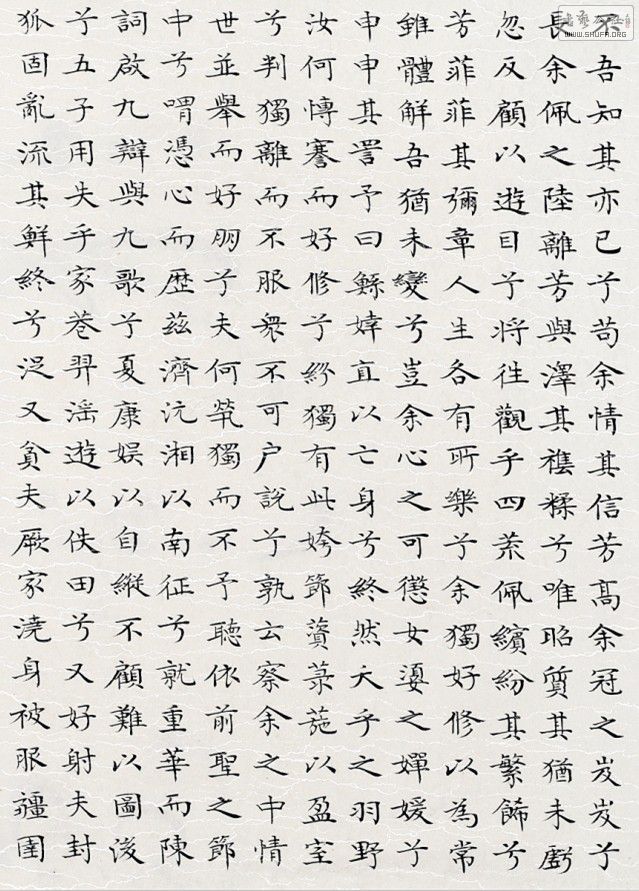 不吾知其亦已兮苟余情其信芳高余冠之岌岌兮
長余佩之陸離芳與澤其襍糅兮唯昭質其猶未虧
忽反顧以遊目兮將往觀乎四荒佩繽紛其繁飾兮
芳菲菲其彌章人生各有所樂兮余獨好修以為常
雖體解吾猶未變兮豈余心之可懲女媭之嬋媛兮
申申其詈予曰鯀婞直以亡身兮終然夭乎之羽野
汝何博謇而好修兮紛獨有此姱節薋菉葹以盈室
兮判獨離而不服眾不可户說兮孰云察余之中情
世並舉而好朋兮夫何煢獨而不予聽依前聖之節
中兮喟憑心而歷茲濟沅湘以南征兮就重華而陳
詞啟九辯與九歌兮夏康娛以自縱不顧難以圖後
兮五子用失乎家巷羿淫遊以佚田兮又好射夫封
狐固亂流其鮮終兮浞又貪夫厥家澆身被服疆圉
WWW.SHUFA.ORG